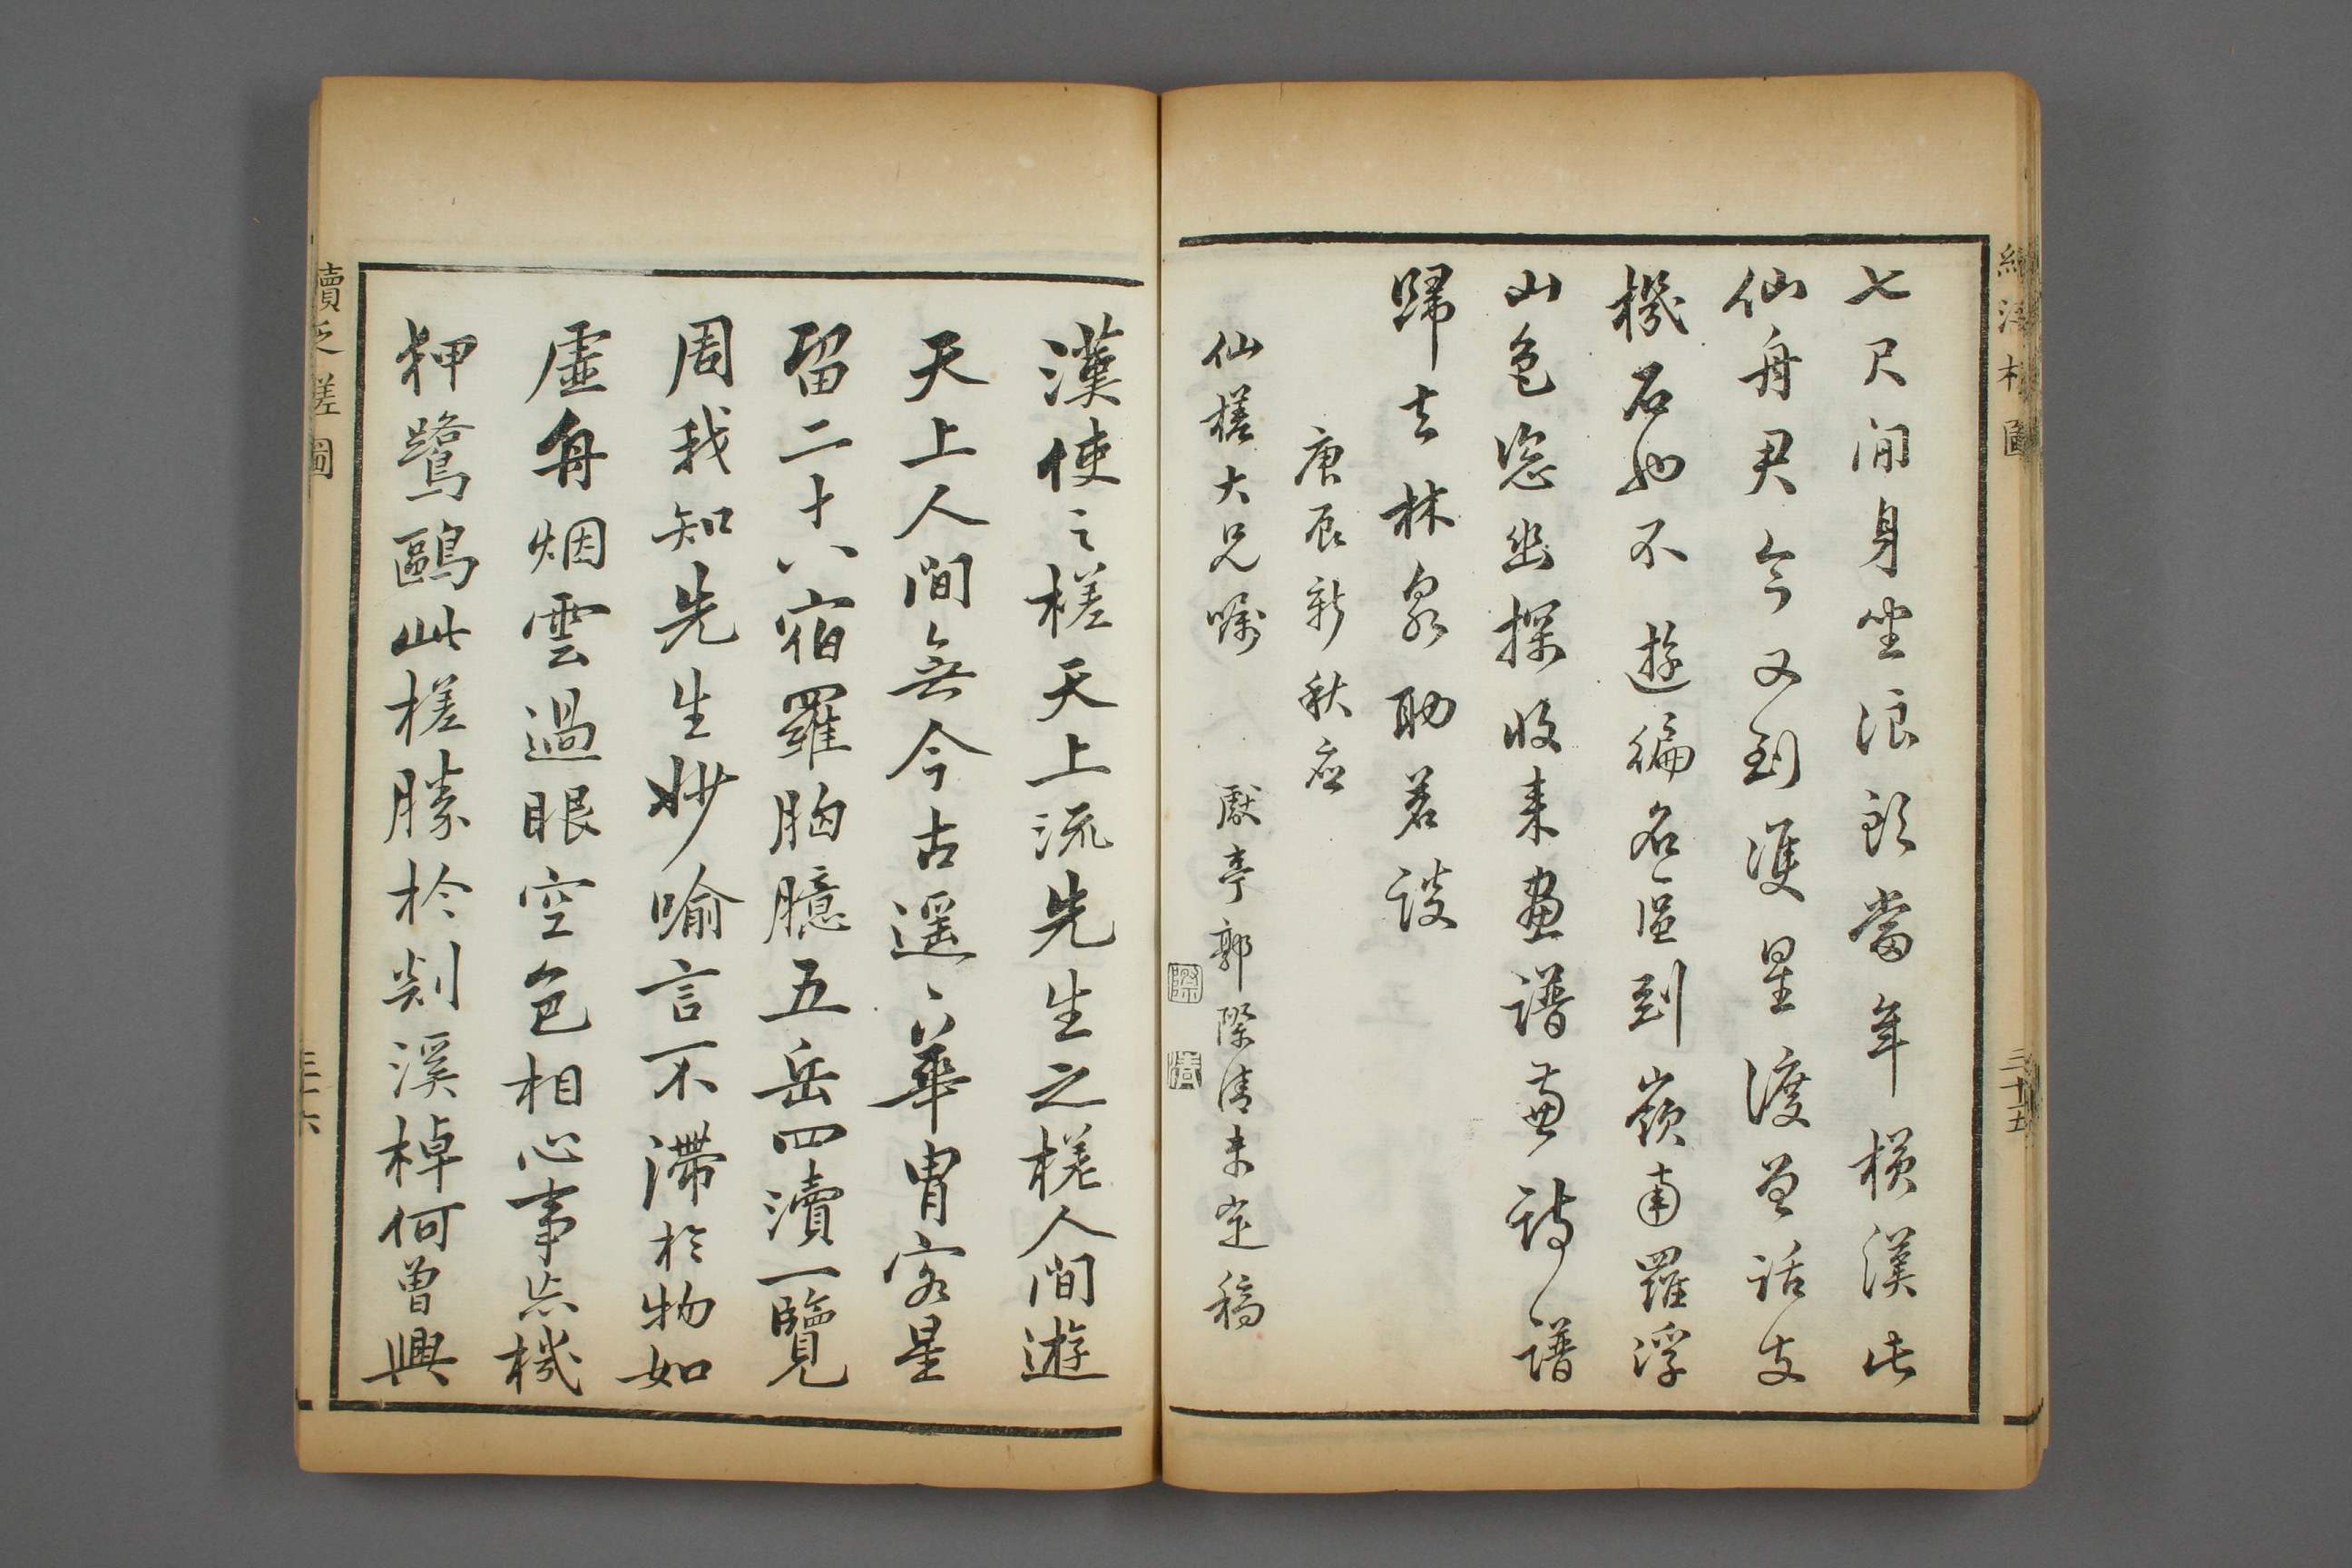 七尺閒身坐浪頭當年橫漢此
仙舟君今又到雙星渡曾話支
機石也不 遊徧名區到嶺南羅浮
山色恣幽探收来畫譜兼詩譜
歸去林泉助茗談
庚辰新秋應
仙槎大兄囑 獻亭郭際清未定稿
際
清
三十五
漢使之槎天上流先生之槎人間遊
天上人間無今古遥遥華胄客星
留二十八宿羅胸臆五岳四瀆一覽
周我知先生妙喻言不滯於物如
虛舟烟雲過眼空色相心事忘機
狎鷺鷗此槎勝於剡溪棹何曾興
續泛槎圖
三十六